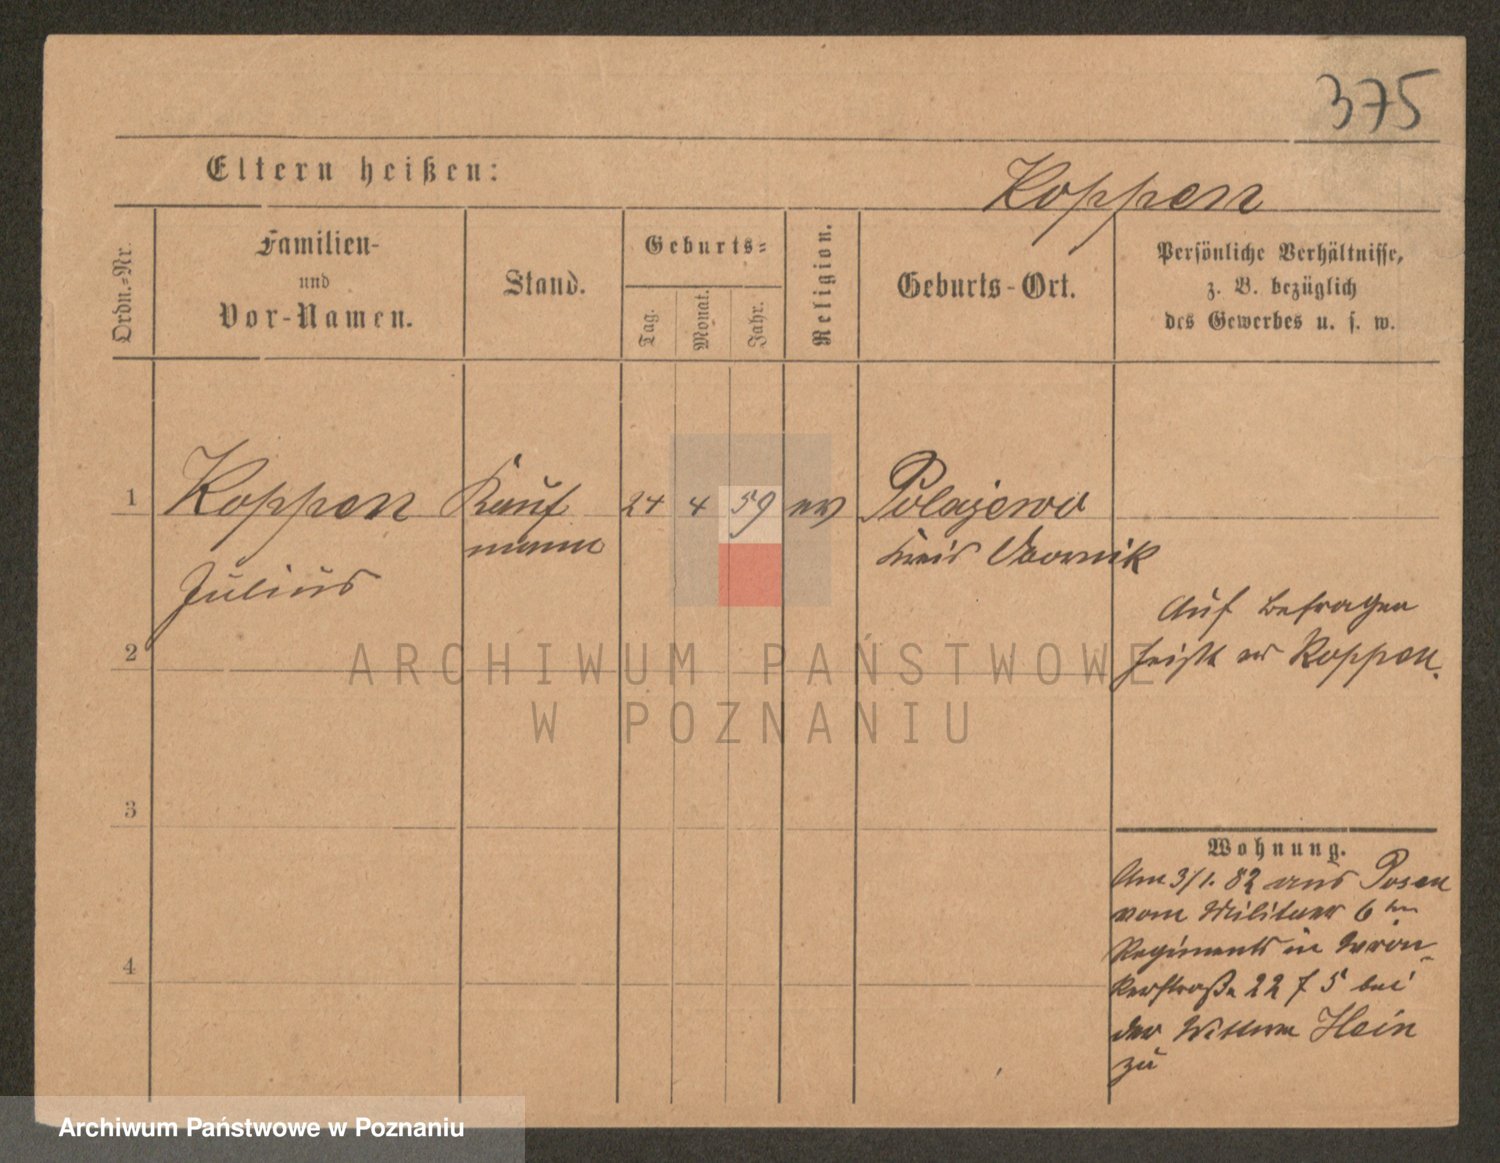 375
Eltern heißen:
Koppen
Ordn.-Nr.
Familien-
und
Vor-Namen.
Stand.
Geburts-
Tag.
Monat.
Jahr.
Religion.
Geburts-Ort.
Persönliche Verhältnisse,
z. B. bezüglich
des Gewerbes u. s. w.
1 Koppen Kauf 24 4 59 ev Polajewo
mann Kreis Obornik
Julius
Auf Befragen
heißt er Koppen.
2
ARCHIWUM PAŃSTWOWE
W POZNANIU
3
Wohnung.
Am 3/1. 82 aus Posen
vom Militaer 6ten
Regiments in Wron-
kerstraße 22 f 5 bei
der Wittwe Hein
zu
4
Archiwum Państwowe w Poznaniu